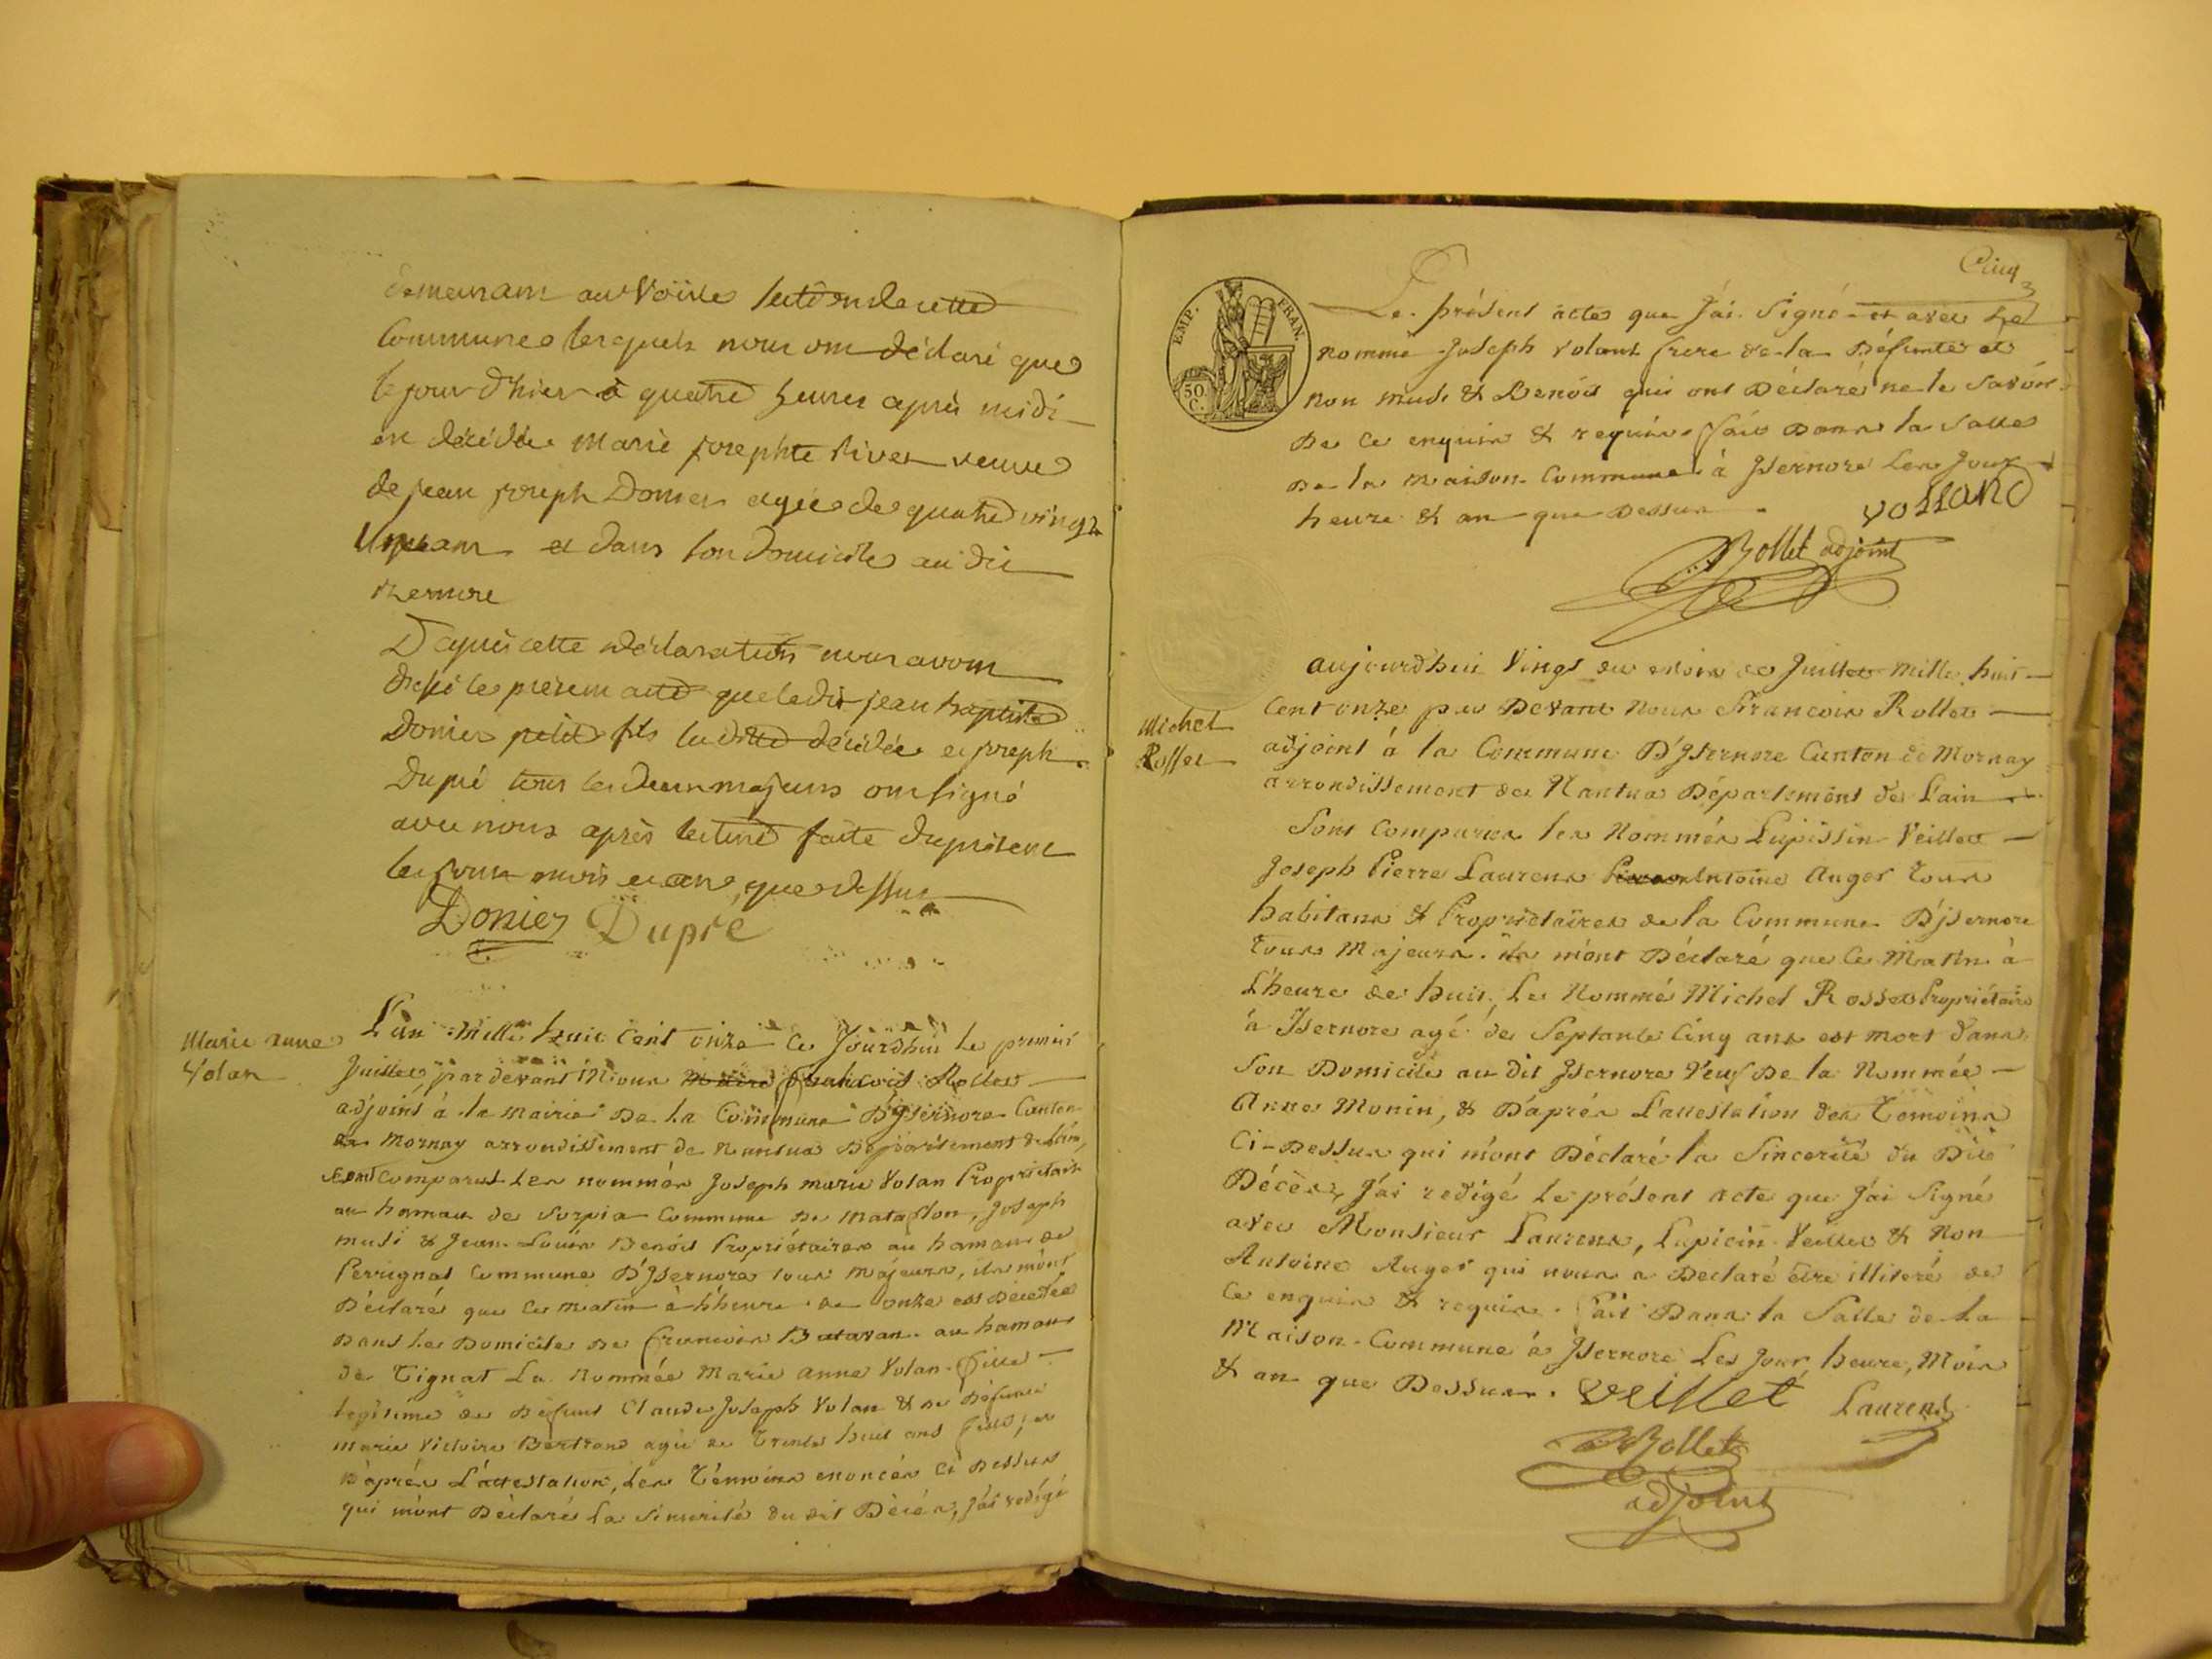 demeurant au Voüilles section de cette
Commune lesquels nous ont déclaré que
le jour d'hier à quatre heures après midi
est décédée Marie josephte Rivet veuve
de jean joseph Donier agée de quatre vingt
ans et dans son domicile au dit
Izernore
D'après cette déclaration nous avons
dressé le présent acte que ledit jean baptiste
Donier petit fils ladite décédée et joseph
Dupré tous les deux majeurs ont signé
avec nous après lecture faite du présent
les jour mois et an que dessus
Donier Dupré
Marie anne
Volan
L'an mille huit cent onze ce Jourdhui le premier
Juillet, pardevant Nous francois Rollet
adjoint à la mairie De la Commune D'Ysernore Canton
de Mornay arrondissement de Nantua Département de L'ain,
sont comparus Les nommés Joseph marie Volan Proprietair
au hameau de Sorpia Commune De Mataflon, Joseph
musi & Jean-Louis Benoit Propriétaires au hameau de
Perrignat Commune D'Ysernore tous Majeurs, ils m'ont
Déclaré que ce matin à h'heure de onze est Décédée
Dans Le Domicile De francois Batavan au hameau
de Tignat La Nommée Marie anne Volan fille
legitime de Défunt Claude Joseph Volan & de Défunte
marie Victoire Bertrand agée de Trente huit ans
D'après L'attestation, des Témoins enoncés ci Dessus
qui m'ont Déclaré La Sincerité du dit Décés, j'ai redigé
Cinq
EMP. FRAN.
50
C.
Le présent acte que J'ai Signé et avec Le
nommé Joseph Volant frere de la Défunte et
non Musi & Benoit qui ont Déclaré ne le savoir
De ce enquis & requis. fait Dans la Salle
De la Maison Commune à Jsernore Les Jour
heure & an que Dessus.
volland
Rollet adjoint
Michel
Rosset
aujourd'hui Vingt du mois de Juillet mille huit
Cent onze par Devant Nous Francois Rollet
adjoint à la Commune D'Jsernore Canton de Mornay
arrondissement de Nantua Département de L'ain
Sont Comparus les Nommés Lupissin Veillet
Joseph Pierre Laurens Antoine Auger tous
habitans & Propriétaires de la Commune D'Jsernore
Tous Majeurs. Ils m'ont Déclaré que ce Matin à
L'heure de huit, Le Nommé Michel Rosset Propriétaire
à Jsernore agé de Septante Cinq ans est mort dans
Son Domicile au dit Jsernore Veuf De la Nommée
Anne Monin, & D'après L'attestation des Témoins
Ci-Dessus qui m'ont Déclaré la Sincerité du Dit
Décès, J'ai redigé Le présent acte que J'ai Signé
avec Monsieur Laurens, Lupicin Veillet & Non
Antoine Auger qui nous a Declaré être illiteré de
Ce enquis & requis. fait Dans la Salle de La
Maison-Commune à Jsernore Les Jour, heure, Mois
& an que Dessus. veillet Laurens
Rollet
adjoint